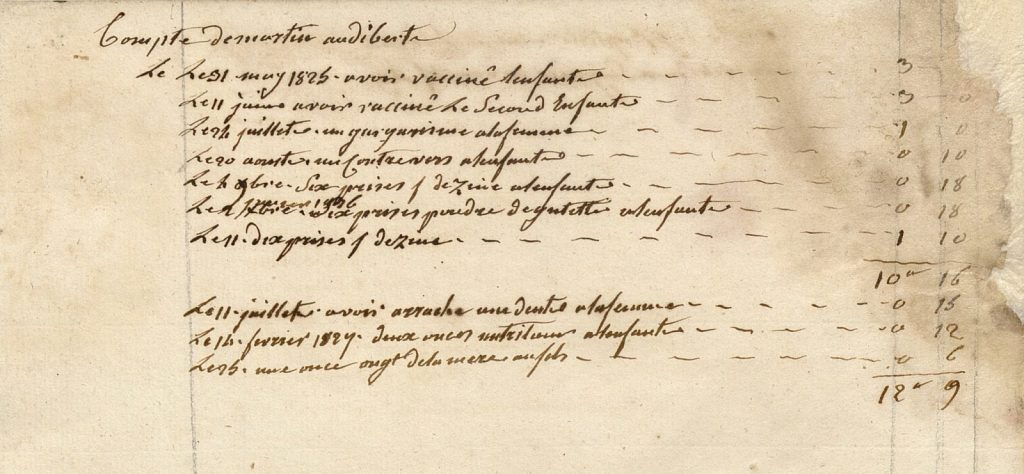 Compte de martin audiberte
Le Le 31 may 1825 avoir vacciné lenfante 3
Le 11 juin avoir vacciné Le Second Enfante 3 0
Le 24 juillet un gargarisme alafemme 1 0
Le 20 aouste un Contrevers alenfante 0 10
Le 4 9bre Six prises f de zinc alenfante 0 18
Le 2 1826 Six prises poudre deguttette alenfante 0 18
Le 11 dix prises f de zinc 1 10
10 16
Le 11 juillet avoir arraché une dent alafemme 0 15
Le 14 fevrier 1827 deux onces nutritum alenfante 0 12
Le 25 une once ongt delamere au fils 0 6
12 9